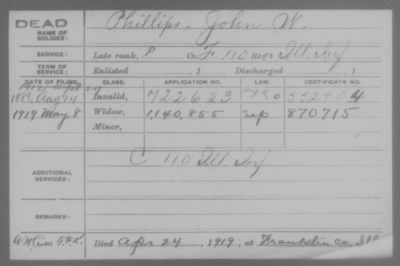 DEAD
NAME OF SOLDIER: Phillips, John W.
SERVICE: Late rank, P Co. F 110 REG'T Ill. Inf.
TERM OF SERVICE: Enlisted , 1 Discharged , 1
DATE OF FILING. CLASS. APPLICATION NO. LAW. CERTIFICATE NO.
Aug 14 Invalid, 722623
1919 May 8 Widow, 1,140,855 Sep 870715
Minor,
C 110 Ill. Inf
ADDITIONAL SERVICES:
REMARKS:
Died Apr 24, 1919, at Franklin Co. Ill